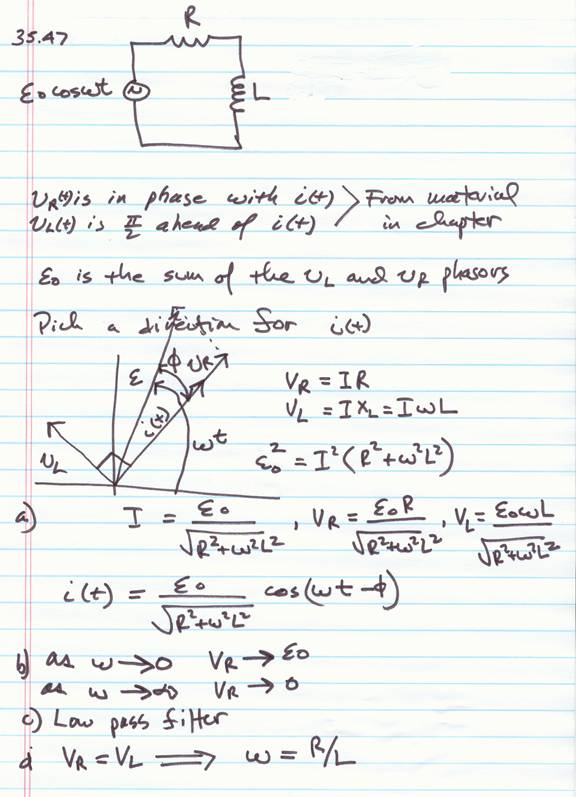 35.47
R
ε₀ cosωt
L
υ_R(t) is in phase with i(t) > From material
υ_L(t) is π/2 ahead of i(t) > in chapter
ε₀ is the sum of the υ_L and υ_R phasors
Pick a direction for i(t)
ε ϕ υ_R
i(t)
υ_L ωt
V_R = IR
V_L = IX_L = IωL
ε₀² = I²(R²+ω²L²)
a) I = ε₀/√(R²+ω²L²), V_R = ε₀R/√(R²+ω²L²), V_L = ε₀ωL/√(R²+ω²L²)
i(t) = ε₀/√(R²+ω²L²) cos(ωt-ϕ)
b) as ω→0 V_R → ε₀
as ω→∞ V_R → 0
c) Low pass filter
d V_R = V_L ⟹ ω = R/L